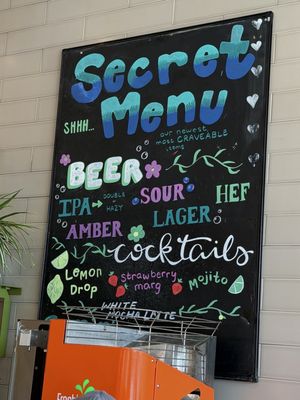 Secret
Menu
SHHH...
our newest,
most CRAVEABLE
items
BEER
SOUR
HEF
IPA
DOUBLE
HAZY
LAGER
AMBER
Cocktails
Lemon
Drop
Strawberry
marg
Mojito
WHITE
MOCHA LATTE